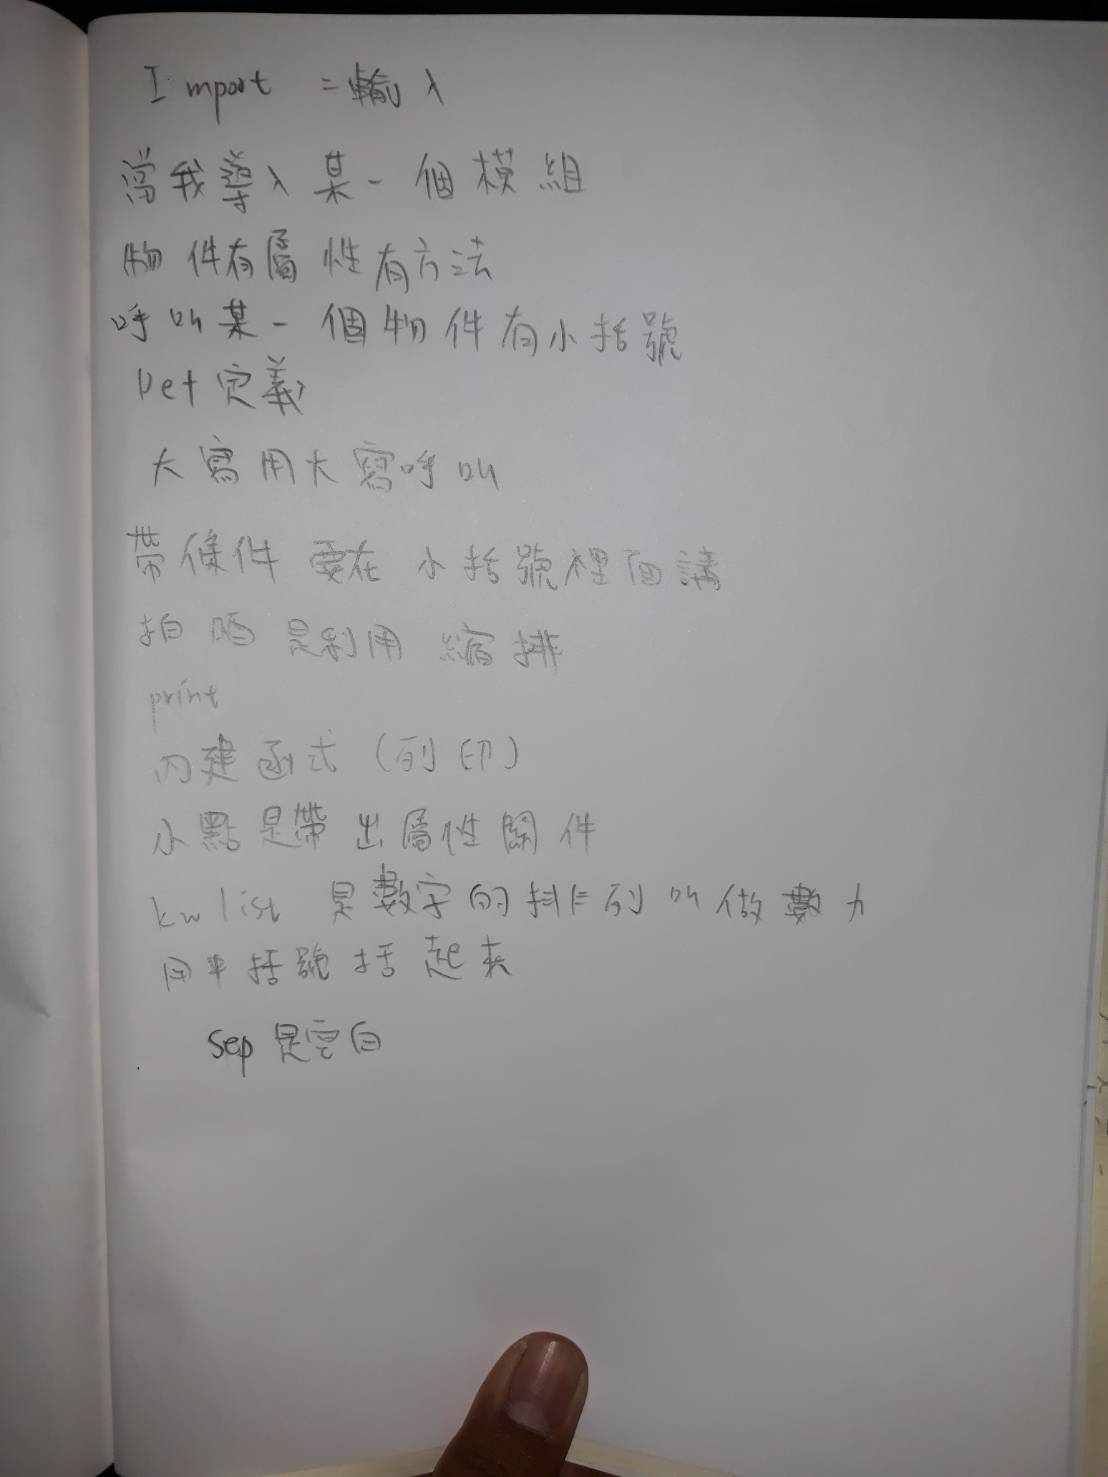 Import =輸入
當我導入某一個模組
物件有屬性有方法
呼叫某一個物件有小括號
Def定義
大寫用大寫呼叫
帶條件 要在小括號裡面講
拍晒是利用縮排
print
內建函式(列印)
小點是帶出屬性關件
kwlist 是數字的排列叫做數力
用中括號括起來
Sep是空白